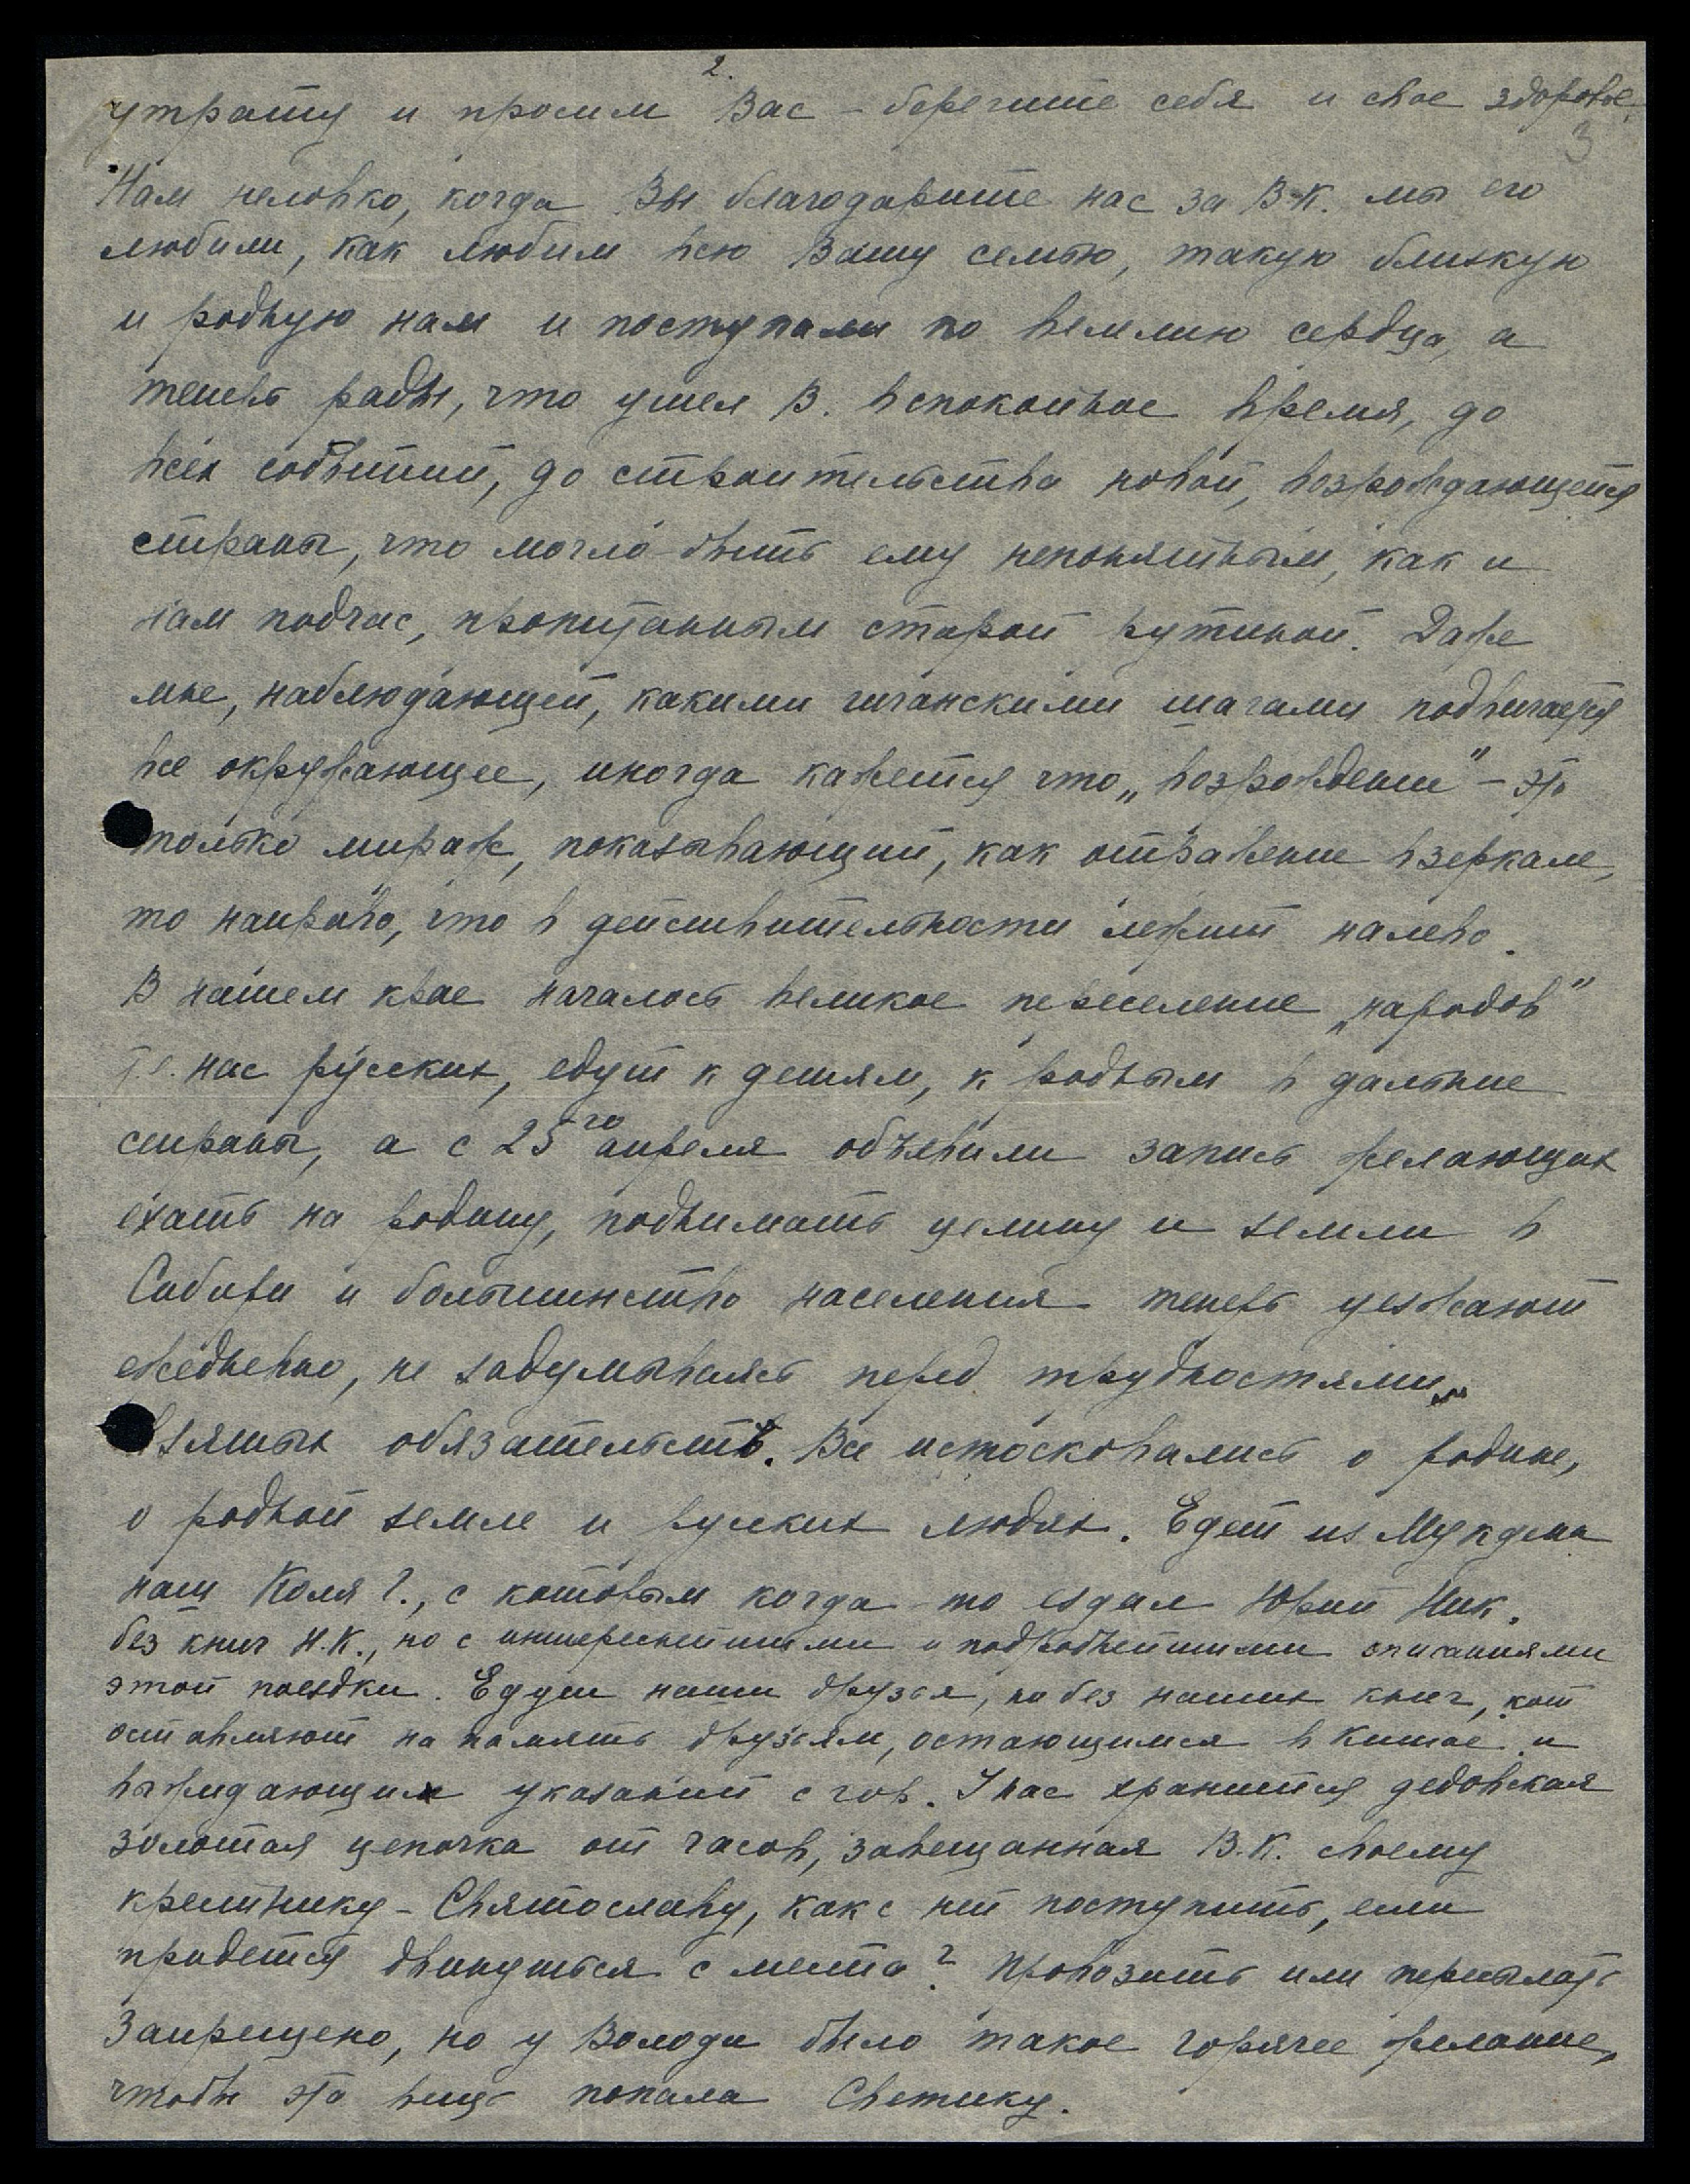 2.
утрату и просим Вас – берегите себя и свое здоровье.
3
Нам неловко, когда Вы благодарите нас за В.К. мы его
любили, как любим всю Вашу семью, такую близкую
и родную нам и поступали по велению сердца, а
теперь рады, что ушел В. в спокойное время, до
всех событий, до строительства новой, возрождающейся
страны, что могло быть ему непонятным, как и
нам подчас, пропитанным старой рутиной. Даже
мне, наблюдающей, какими гигантскими шагами подвигается
все окружающее, иногда кажется что „возрождение" – это
только мираж, показывающий, как отражение в зеркале,
то направо, что в действительности лежит налево.
В нашем крае началось великое переселение „народов"
т.е. нас русских, едут к детям, к родным в дальние
страны, а с 25го апреля объявили запись желающих
ехать на родину, поднимать целину и земли в
Сибири и большинство населения теперь уезжают
ежедневно, не задумываясь перед трудностями
взятых обязательств. Все истосковались о родине,
о родной земле и русских людях. Едет из Мукдена
наш Коля Г., с которым когда-то ездил Юрий Ник.
без книг Н.К., но с интереснейшими и подробнейшими описаниями
этой поездки. Едут наши друзья, но без наших книг, кот
оставляют на память друзьям, остающимся в Китае и
выжидающим указаний с гор. У нас хранится дедовская
золотая цепочка от часов, завещанная В.К. своему
крестнику – Святославу, как с ней поступить, если
придется двинуться с места? Провозить или пересылать
запрещено, но у Володи было такое горячее желание,
чтобы эта вещь попала Светику.